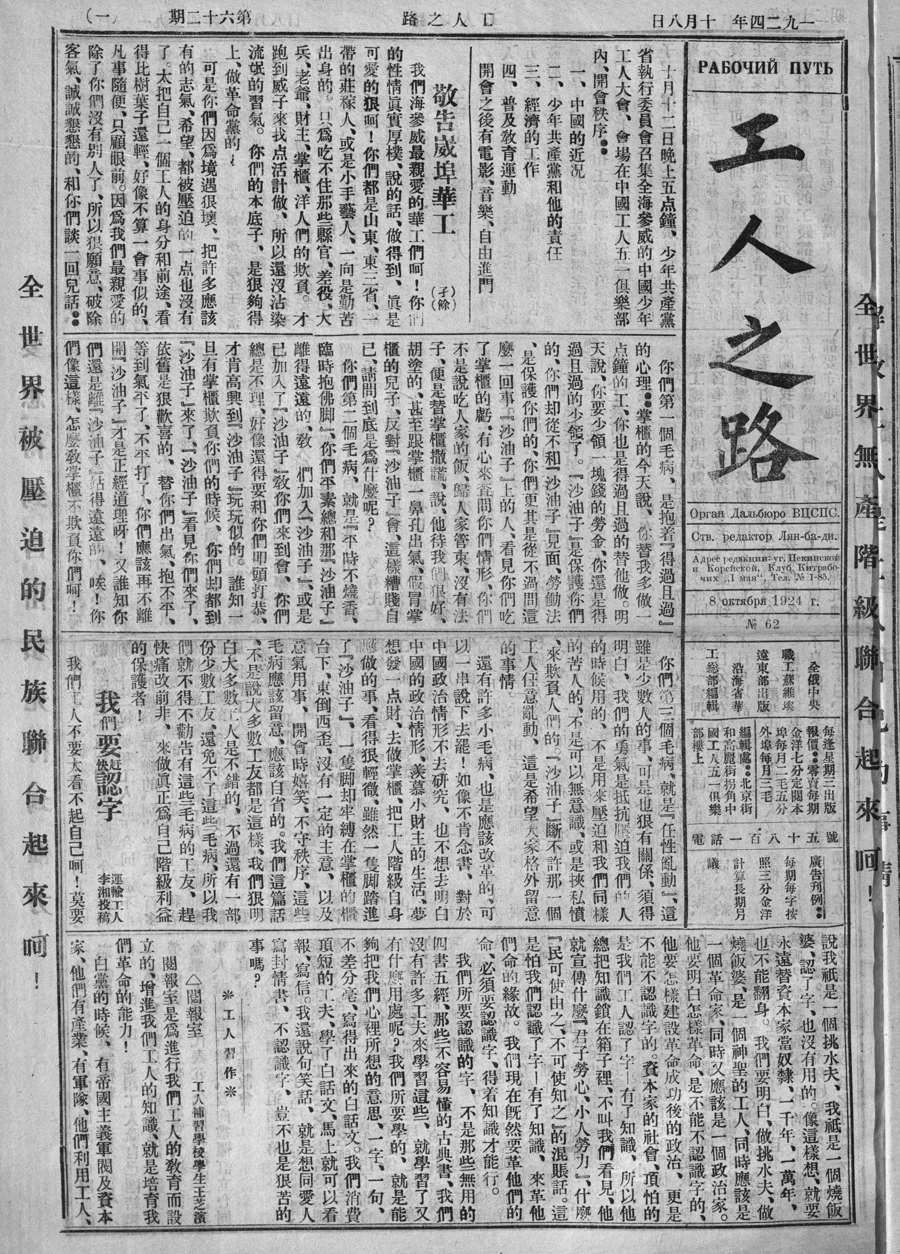 一九二四年 十月八日
工人之路
第六十二期
(一)
РАБОЧИЙ ПУТЬ
工人之路
Орган Дальбюро ВЦСПС.
Отв. редактор Лян-ба-ди.
Адрес редакции: уг. Пекинской
и Корейской, Клуб Китрабо-
чих „1 мая“. Тел. № 1-85.
8 октября 1924 г.
№ 62
全俄中央
職工蘇維埃
遠東部出版
沿海省華
工總部編輯
每逢星期三出版
報價：零賣每期
金洋七分定閱本
埠每月二毛五分
外埠每月三毛
編輯處：北京街
和高麗街拐角中
國工人五一俱樂
部樓上
電話一百八十五號
廣告刊例：
每期每字按
照三分金洋
計算長期另
議
十月十二日晚上五点鐘、少年共產黨
省執行委員會召集全海參威的中國少年
工人大會、會場在中國工人五一俱樂部
內、開會秩序：
一、中國的近況
二、少年共產黨和他的責任
三、經濟的工作
四、普及敎育運動
開會之後有電影、音樂、自由進門
敬告崴埠華工
我們海參威最親愛的華工們呵！你們
的性情眞實厚樸、說的話、做得到、眞是
可愛的狠呵！你們都是山東、東三省、一
帶的莊稼人、或是小手藝人、一向是勤苦
出身的。只爲吃不住那些縣官、差役、大
兵、老爺、財主、掌櫃、洋人們的欺負。才
跑到威子來找点活計做、所以還沒沾染
流氓的習氣。你們的本底子、是狠夠得
上、做革命黨的
可是你們因爲境遇狠壞、把許多應該
有的志氣、希望、都被壓迫的一点也沒有
了。太把自己一個工人的身分和前途、看
得比樹葉子還輕、好像不算一會事似的、
凡事隨便、只顧眼前。因爲我們最親愛的
除了你們沒有別人了、所以狠願意、破除
客氣、誠誠懇懇的、和你們談一回兒話：
你們第一個毛病、是抱着『得過且過』
的心理：掌櫃的今天說、你替我多做一
点鐘的工、你也是得過且過的替他做。明
天說、你要少領一塊錢的勞金、你還是得
過且過的少領了。『沙油子』是保護你們
的、你們却從不和『沙油子』見面、勞働法
、是保護你們的、你們更其是從不過問這
麼一回事。『沙油子』上的人、看見你們吃
了掌櫃的虧、有心來查問你們情形、你們
不是說吃人家的飯、歸人家管束、沒有法
子、便是替掌櫃撒謊、說、他待我們狠好、
胡塗的、甚至跟掌櫃一鼻孔出氣、假冒掌
櫃的兒子、反對『沙油子』會、這樣糟賤自
己、請問到底是爲什麼呢？
你們第二個毛病、就是『平時不燒香、
臨時抱佛脚』、你們平素總和那『沙油子』
離得遠遠的、敎 們加入『沙油子』、或是
已加入了『沙油子』敎你們來到會、你們
總是不理、好像還得要和你們叩頭打恭、
才肯高興到『沙油子』玩玩似的。誰知一
旦有掌櫃欺負你們的時候、你們却都到
『沙油子』來了、『沙油子』看見你們來了、
依舊是狠歡喜的、替你們出氣、抱不平、
等到氣平了、不平打了、你們應該再不離
開『沙油子』才是正經道理呀！又誰知你
們還是離『沙油子』站得遠遠的、唉！你
們像這樣、怎麼敎掌櫃不欺負你們呵！
你們第三個毛病、就是『任性亂動』、這
雖是少數人的事、可是也狠有關係、須得
明白、我們的勇氣是抵抗壓迫我們的人
的時候用的、不是用來壓迫和我們同樣
的苦人的、不是可以無意識、或是挾私憤
、來欺負人們的、『沙油子』斷不許那一個
工人任意亂動、這是希望大家格外留意
的事情。
還有許多小毛病、也是應該改革的、可
以一串說下去罷！如像不肯念書、對於
中國政治情形不去研究、也不想去明白
中國的政治情形、羨慕小財主的生活、夢
想發一点財、去做掌櫃、把工人階級自身
應做的事、看得狠輕微、雖然一隻脚踏進
了『沙油子』、一隻脚却牢縛在掌櫃的櫃
台下、東倒西歪、沒有一定的主意、以及
意氣用事、開會時嬉笑、不守秩序、這些
毛病應該留意、應該自省的。我們這篇話
、不是說大多數工友都是這樣、我們狠明
白大多數工人是不錯的、不過還有一部
份少數工友、還免不了這些毛病、所以我
們就不得不勸吿有這些毛病的工友、趕
快痛改前非、來做眞正爲自己階級利益
的保護者！
我們要趕快認字
運輸工人
李湘投稿
我們工人不要太看不起自己呵！莫要
說我祇是一個挑水夫、我祇是一個燒飯
婆、認了字、也沒有用的。像這樣想、就要
永遠替資本家當奴隸、一千年、一萬年、
也不能翻身。我們要明白、做挑水夫、做
燒飯婆、是一個神聖的工人、同時應該是
一個革命家、同時又應該是一個政治家。
他要明白怎樣革命、是不能不認識字的、
他要怎樣建設革命成功後的政治、更是
不能不認識字的。資本家的社會、頂怕的
是我們工人認了字—有了知識、所以他
總把知識鎖在箱子裡、不叫我們看見、他
就宣傳什麼『君子勞心、小人勞力』、什麼
『民可使由之、不可使知之』的混賬話。這
是怕我們認識了字—有了知識、來革他
們命的緣故。我們現在旣然要革他們的
命、必須要認識字、得着知識才能行。
我們所要認識的字、不是那些無用的
四書五經、那些不容易懂的古典書、我們
沒有許多工夫來學習這些、就學習了又
有什麼用處呢？我們所要學的、就是能
夠把我們心裡所想的意思、一字、一句、
不差分毫、寫得出來的白話文。我們消費
項短的工夫、學了白話文、馬上就可以看
報、寫信。我還說句笑話、就是想同愛人
寫封情書、不認識字、豈不也是狠苦的
事嗎？
※工人習作※
△閱報室
工人補習學校學生王芝濱
閱報室是爲進行我們工人的敎育而設
立的、增進我們工人的知識、就是培育我
們革命的能力！
白黨的時候、有帝國主義軍閥及資本
家、他們有產業、有軍隊、他們利用工人、
全世界無產階級聯合起來呵！
全世界被壓迫的民族聯合起來呵！